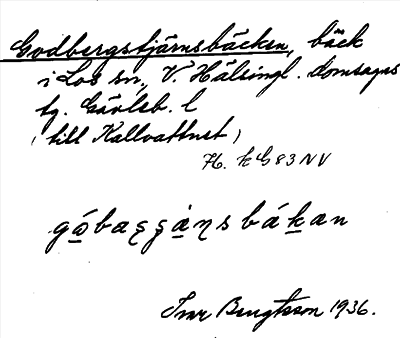 Godbergstjärnsbäcken, bäck
i Los sn, V. Hälsingl. domsagas
tg. Gävleb. l
(till Kallvattnet)
H. kG 83 NV
bákan
Ivar Bengtsson 1936.